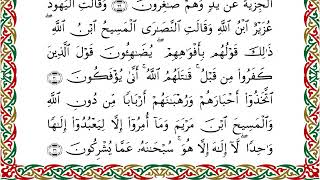 ٱلْجِزْيَةَ عَن يَدٍ وَهُمْ صَٰغِرُونَ ۝ وَقَالَتِ ٱلْيَهُودُ
عُزَيْرٌ ٱبْنُ ٱللَّهِ وَقَالَتِ ٱلنَّصَٰرَى ٱلْمَسِيحُ ٱبْنُ ٱللَّهِ ۖ
ذَٰلِكَ قَوْلُهُم بِأَفْوَٰهِهِمْ ۖ يُضَٰهِـُٔونَ قَوْلَ ٱلَّذِينَ
كَفَرُوا۟ مِن قَبْلُ ۚ قَٰتَلَهُمُ ٱللَّهُ ۚ أَنَّىٰ يُؤْفَكُونَ ۝
ٱتَّخَذُوٓا۟ أَحْبَارَهُمْ وَرُهْبَٰنَهُمْ أَرْبَابًا مِّن دُونِ ٱللَّهِ
وَٱلْمَسِيحَ ٱبْنَ مَرْيَمَ وَمَآ أُمِرُوٓا۟ إِلَّا لِيَعْبُدُوٓا۟ إِلَٰهًا
وَٰحِدًا ۖ لَّآ إِلَٰهَ إِلَّا هُوَ ۚ سُبْحَٰنَهُۥ عَمَّا يُشْرِكُونَ ۝